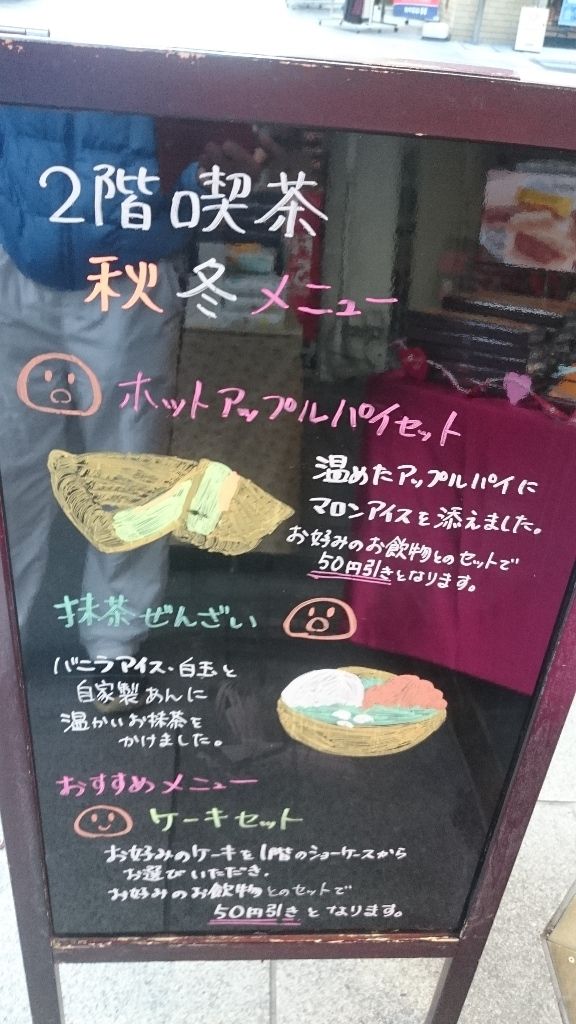 2階喫茶
秋冬メニュー
ホットアップルパイセット
温めたアップルパイに
マロンアイスを添えました。
お好みのお飲物とのセットで
50円引きとなります。
抹茶ぜんざい
バニラアイス・白玉と
自家製あんに
温かいお抹茶を
かけました。
おすすめメニュー
ケーキセット
お好みのケーキを1階のショーケースから
お選びいただき.
お好みのお飲物とのセットで
50円引きとなります。